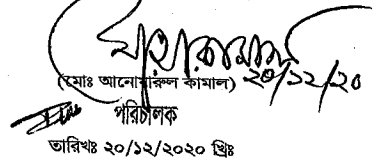 ২০/১২/২০
(মোঃ আনোয়ারুল কামাল)
পরিচালক
তারিখঃ ২০/১২/২০২০ খ্রিঃ